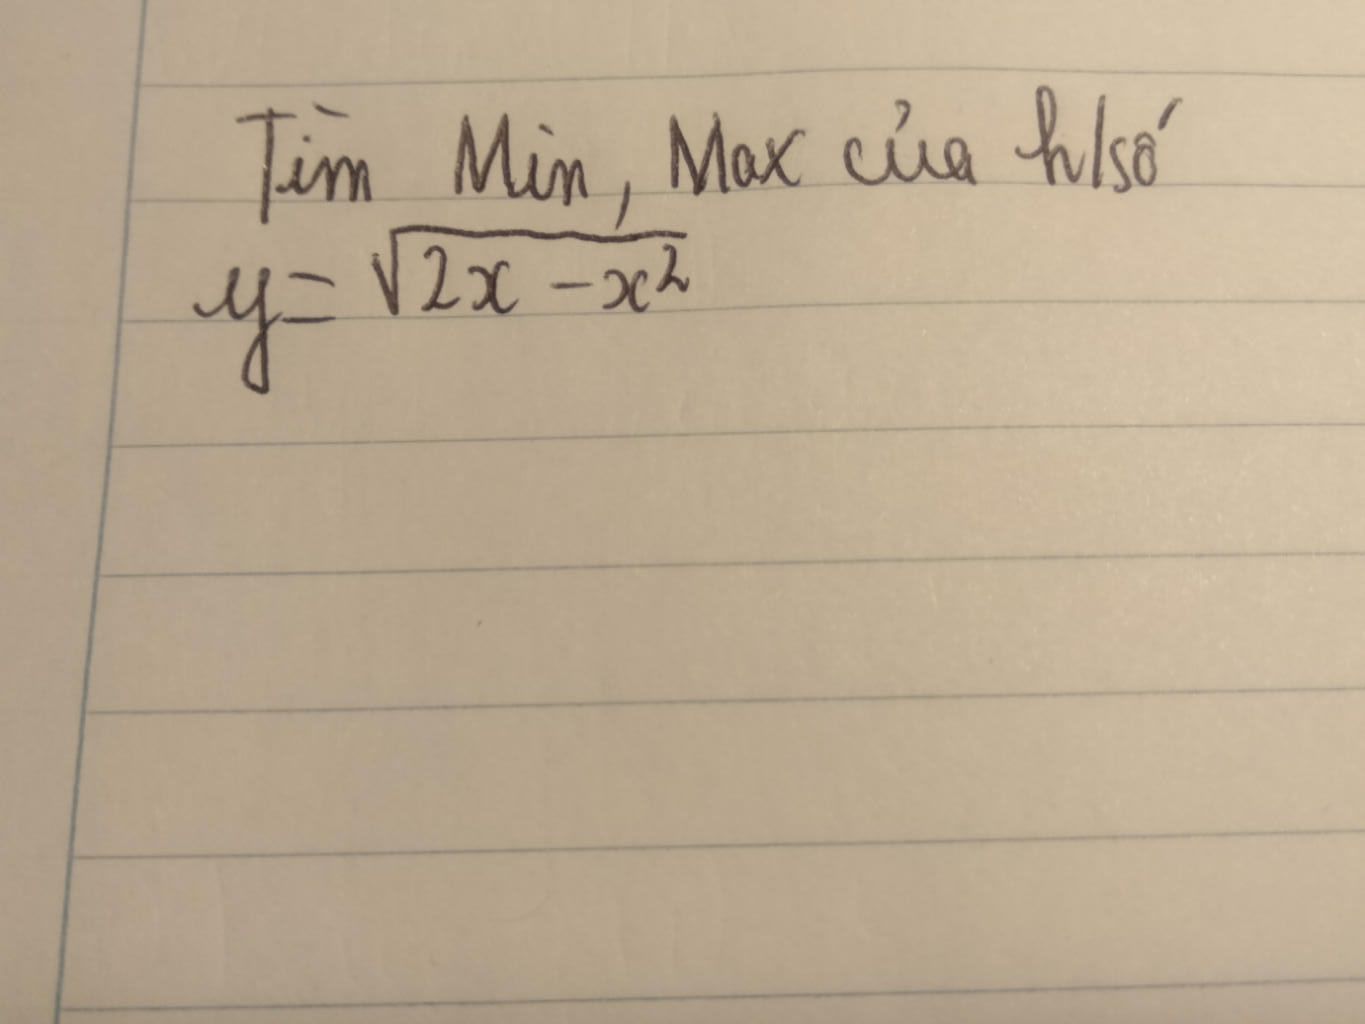 Tìm Min, Max của h/số
y = √2x - x²